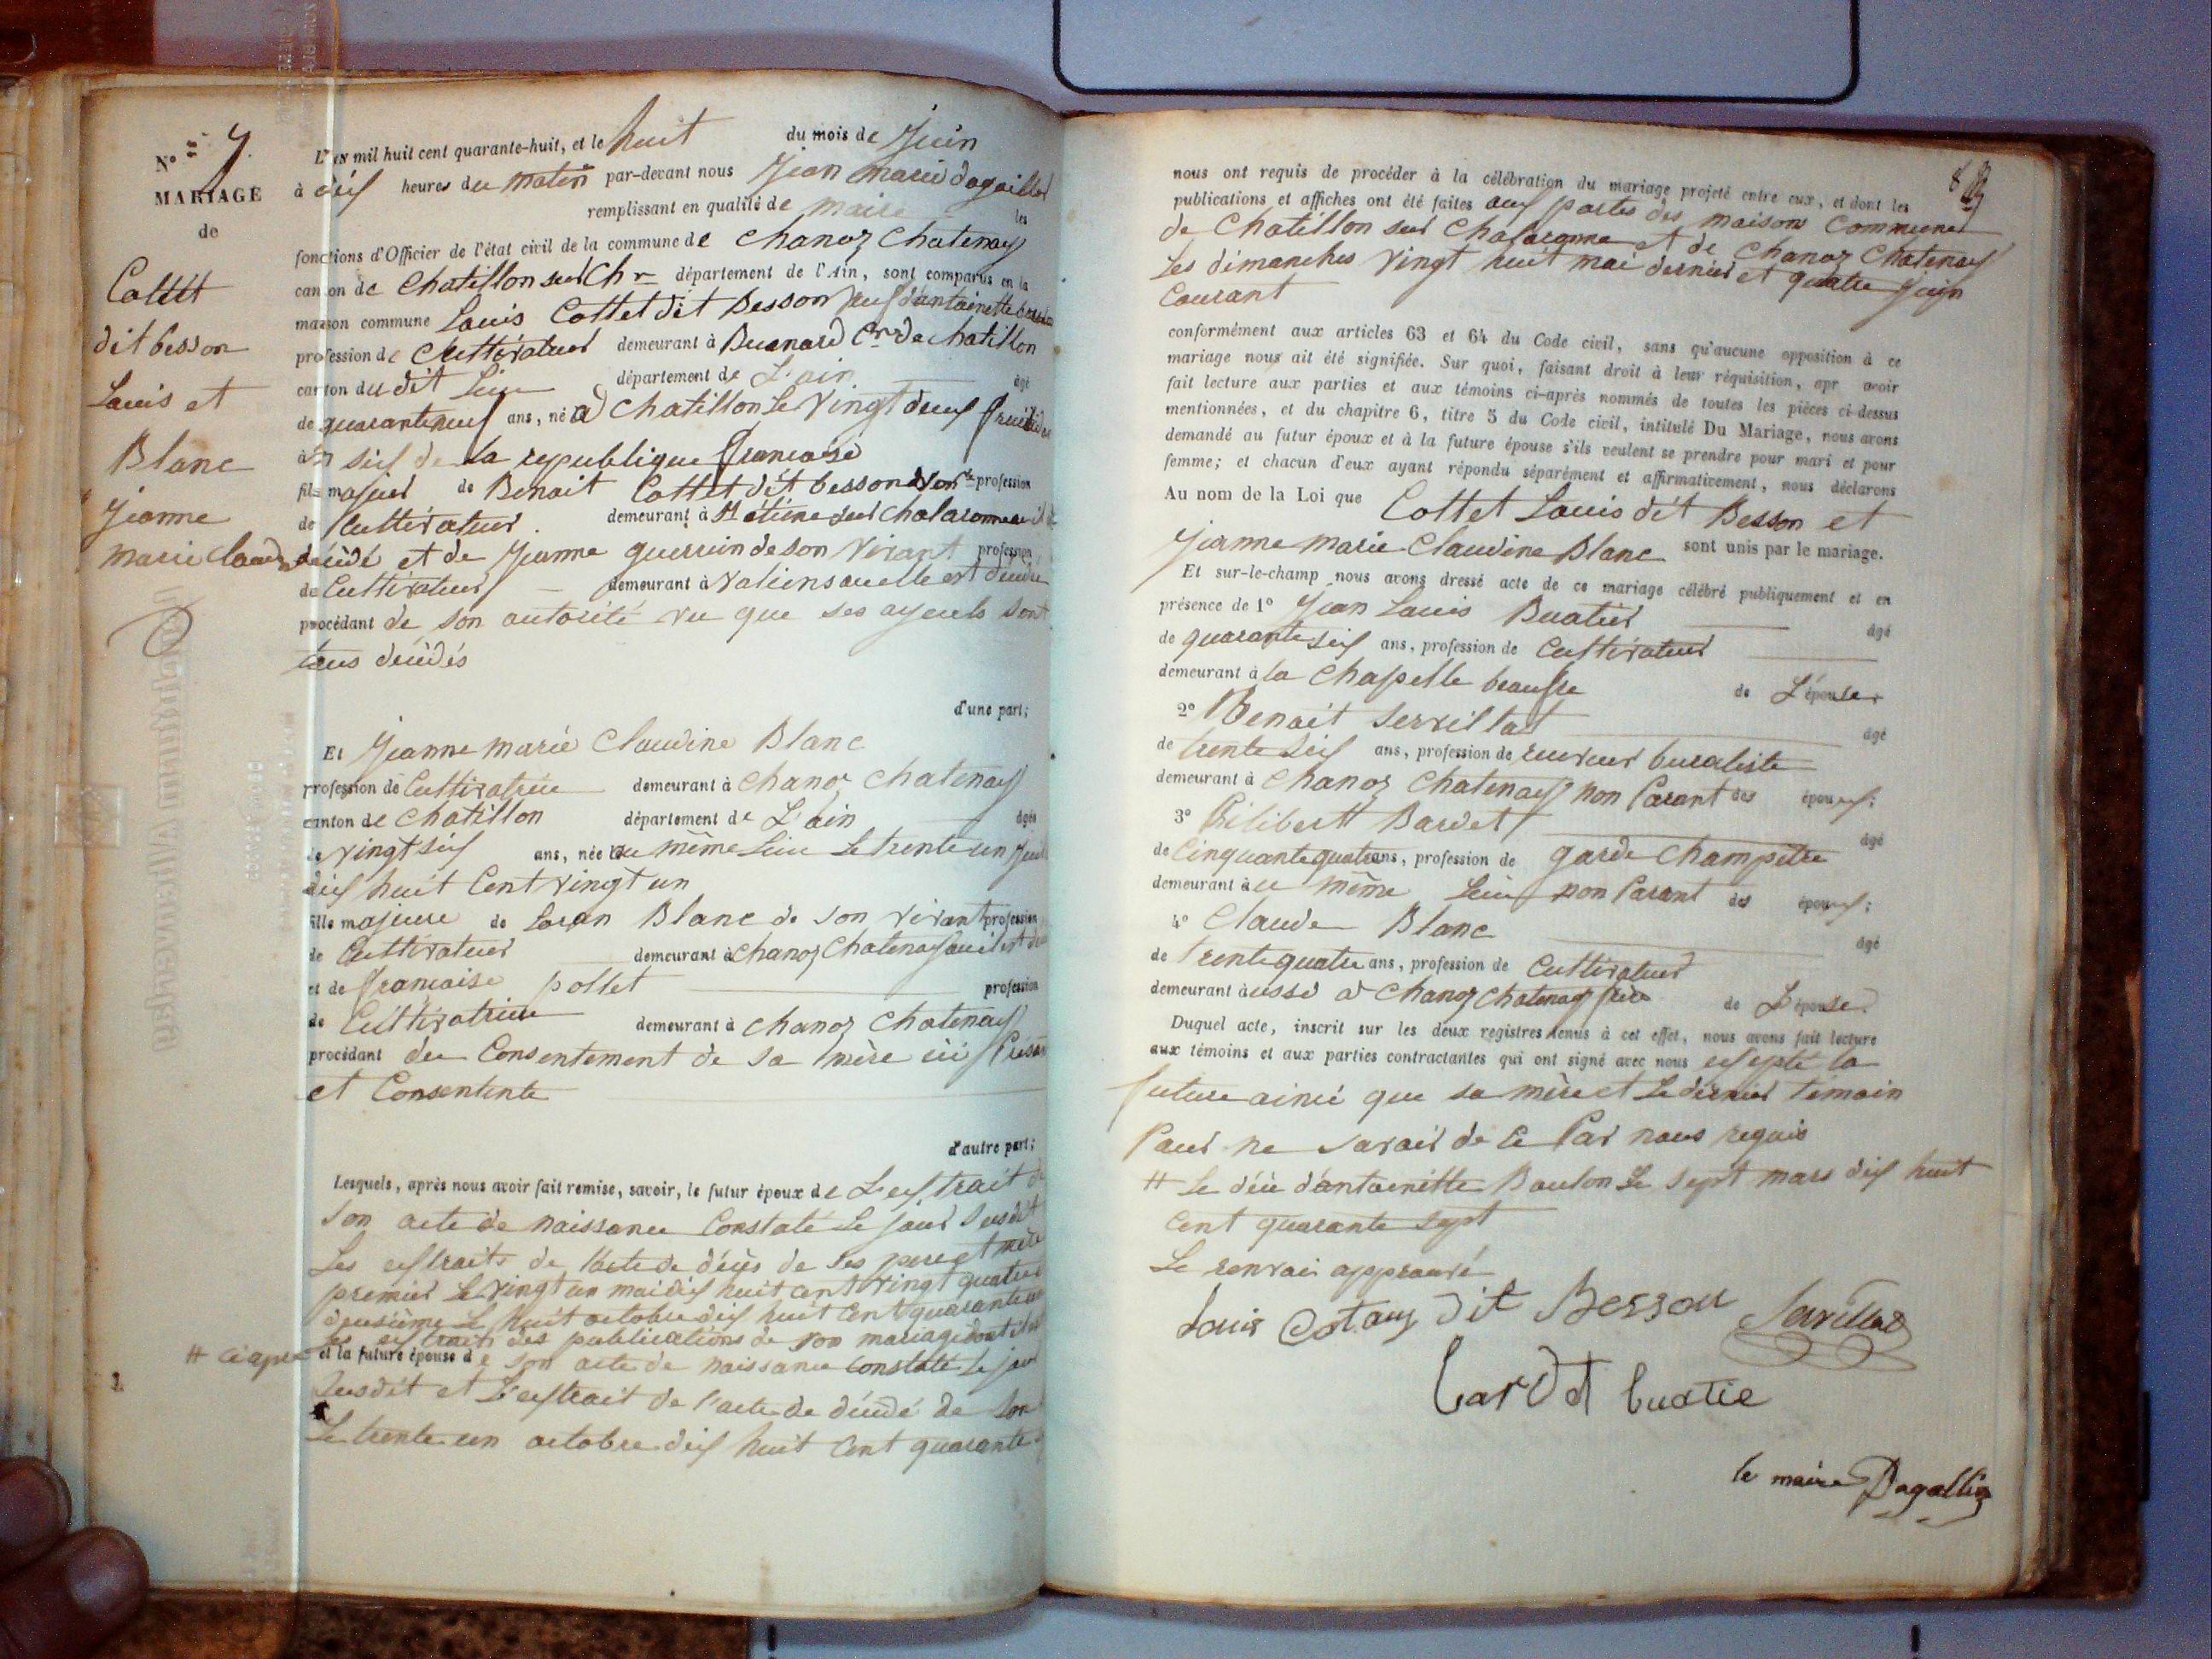 N° 7.
MARIAGE
de
Cottet
dit besson
Louis et
Blanc
Jeanne
marie
L'AN mil huit cent quarante-huit, et le huit du mois de Juin
à dix heures du matin par-devant nous Jean marie
remplissant en qualité de maire les
fonctions d'Officier de l'état civil de la commune de Chanoz Chatenay
canton de Chatillon sur Chr département de l'Ain, sont comparus en la
maison commune Louis Cottet dit Besson veuf d'antoinette
profession de Cultivateur demeurant à Buenard de Chatillon
canton du dit Lieu département de L'ain âgé
de quaranteneuf ans, né à Chatillon Le Vingt deux
an six de la republique francaise
fils majeur de Benoit Cottet dit besson profession
de Cultivateur demeurant à St étiene sur Chalaronne
décédé et de Jeanne guerrin de son vivant profession
de Cultivateur demeurant à Valeins ou elle est
procédant de son autorité vu que ses ayeuls sont
tous décédés
d'une part;
Et Jeanne marie Claudine Blanc
profession de Cultivatrice demeurant à Chanoz Chatenay
canton de Chatillon département de L'ain âgée
de Vingt six ans, née au même Lieu Le trente un
dix huit Cent vingt un
fille majeure de Blanc de son vivant profession
de Cultivateur demeurant à Chanoz Chatenay ou il est
et de francaise pollet profession
de Cultivatrice demeurant à Chanoz Chatenay
procédant du Consentement de sa mère ici
et Consentente
d'autre part;
Lesquels, après nous avoir fait remise, savoir, le futur époux de L'extrait de
son acte de naissance Constaté Le jour Susdit
Les extraits de l'acte de décès de ses pere et mère
premier Le vingt un mai dix huit cent vingt quatre
deusième Le huit octobre dix huit Cent quarante
Les extraits des publications de son mariage
# ci après
et la future épouse de son acte de naissance Constaté Le jour
Susdit et L'extrait de l'acte de décédé de son
Le trente un octobre dix huit Cent quarante
nous ont requis de procéder à la célébration du mariage projeté entre eux, et dont les
publications et affiches ont été faites aux portes des maisons Communes
de Chatillon sur Chalaronne et de Chanoz Chatenay
Les dimanches Vingt huit mai dernier et quatre juin
Courant
conformément aux articles 63 et 64 du Code civil, sans qu'aucune opposition à ce
mariage nous ait été signifiée. Sur quoi, faisant droit à leur réquisition, apr avoir
fait lecture aux parties et aux témoins ci-après nommés de toutes les pièces ci-dessus
mentionnées, et du chapitre 6, titre 5 du Code civil, intitulé Du Mariage, nous avons
demandé au futur époux et à la future épouse s'ils veulent se prendre pour mari et pour
femme; et chacun d'eux ayant répondu séparément et affirmativement, nous déclarons
Au nom de la Loi que Cottet Louis dit Besson et
Jeanne marie Claudine Blanc sont unis par le mariage.
Et sur-le-champ nous avons dressé acte de ce mariage célébré publiquement et en
présence de 1° Jean Louis Buatier âgé
de quarante six ans, profession de Cultivateur
demeurant à la Chapelle de L'épouse
2° Benoit Servillat âgé
de trente six ans, profession de receveur buraliste
demeurant à Chanoz Chatenay non Parant des époux;
3° Philibert Bardet âgé
de Cinquante quatre ans, profession de garde Champêtre
demeurant au même Lieu non Parant des époux;
4° Claude Blanc âgé
de trente quatre ans, profession de Cultivateur
demeurant aussi à Chanoz Chatenay frère de L'épouse
Duquel acte, inscrit sur les deux registres tenus à cet effet, nous avons fait lecture
aux témoins et aux parties contractantes qui ont signé avec nous exepté la
future ainsi que sa mère et Le dernier témoin
Pour ne savoir de ce Par nous requis
# Le décè d'antoinette Boulon Le sept mars dix huit
cent quarante sept
Le renvoi approuvé
Louis dit Besson Servillat
bardet buatie
le maire Dagallier